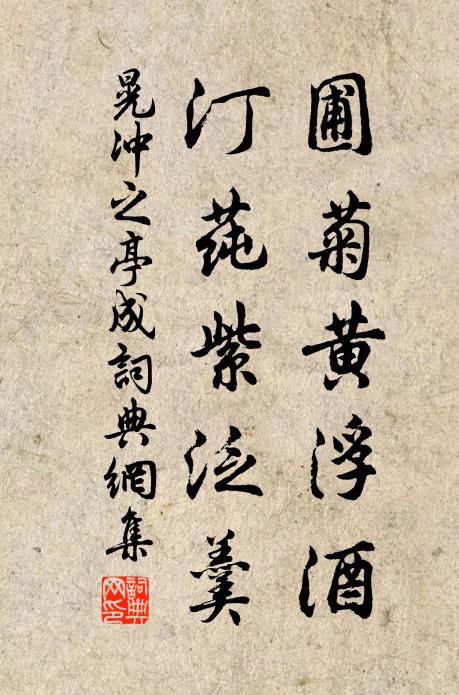 圃菊黄浮酒
汀莼紫泛羹
晁冲之亭成詞典網集
詞典网印